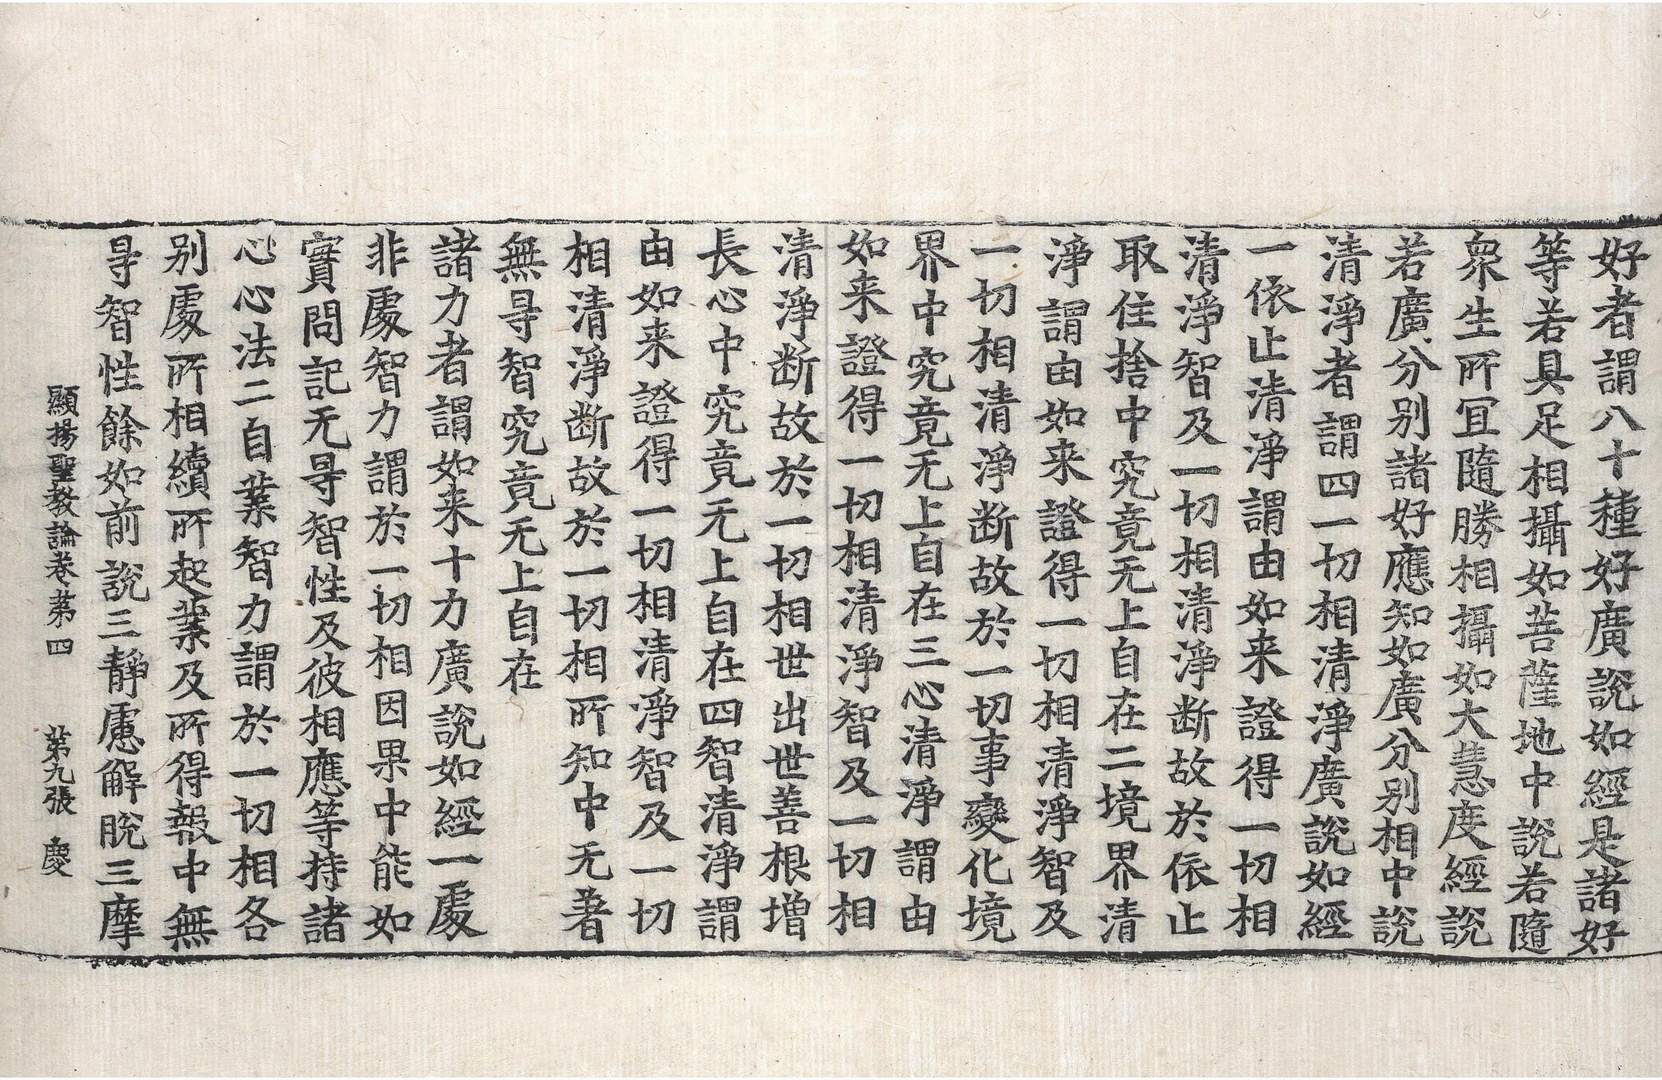 好者謂八十種好廣說如經是諸好
等若具足相攝如菩薩地中說若隨
衆生所冝隨勝相攝如大慧度經說
若廣分别諸好應知如廣分别相中說
清淨者謂四一切相清淨廣說如經
一依止清淨謂由如来證得一切相
清淨智及一切相清淨断故於依止
取住捨中究竟无上自在二境界清
淨謂由如来證得一切相清淨智及
一切相清淨断故於一切事變化境
界中究竟无上自在三心清淨謂由
如来證得一切相清淨智及一切相
清淨断故於一切相世出世善根增
長心中究竟无上自在四智清淨謂
由如来證得一切相清淨智及一切
相清淨断故於一切相所知中无著
無㝵智究竟无上自在
諸力者謂如来十力廣說如經一處
非處智力謂於一切相因果中能如
實問記无㝵智性及彼相應等持諸
心心法二自業智力謂於一切相各
别處所相續所起業及所得報中無
㝵智性餘如前說三静慮解脫三摩
顯揚聖教論卷第四　第九張　慶